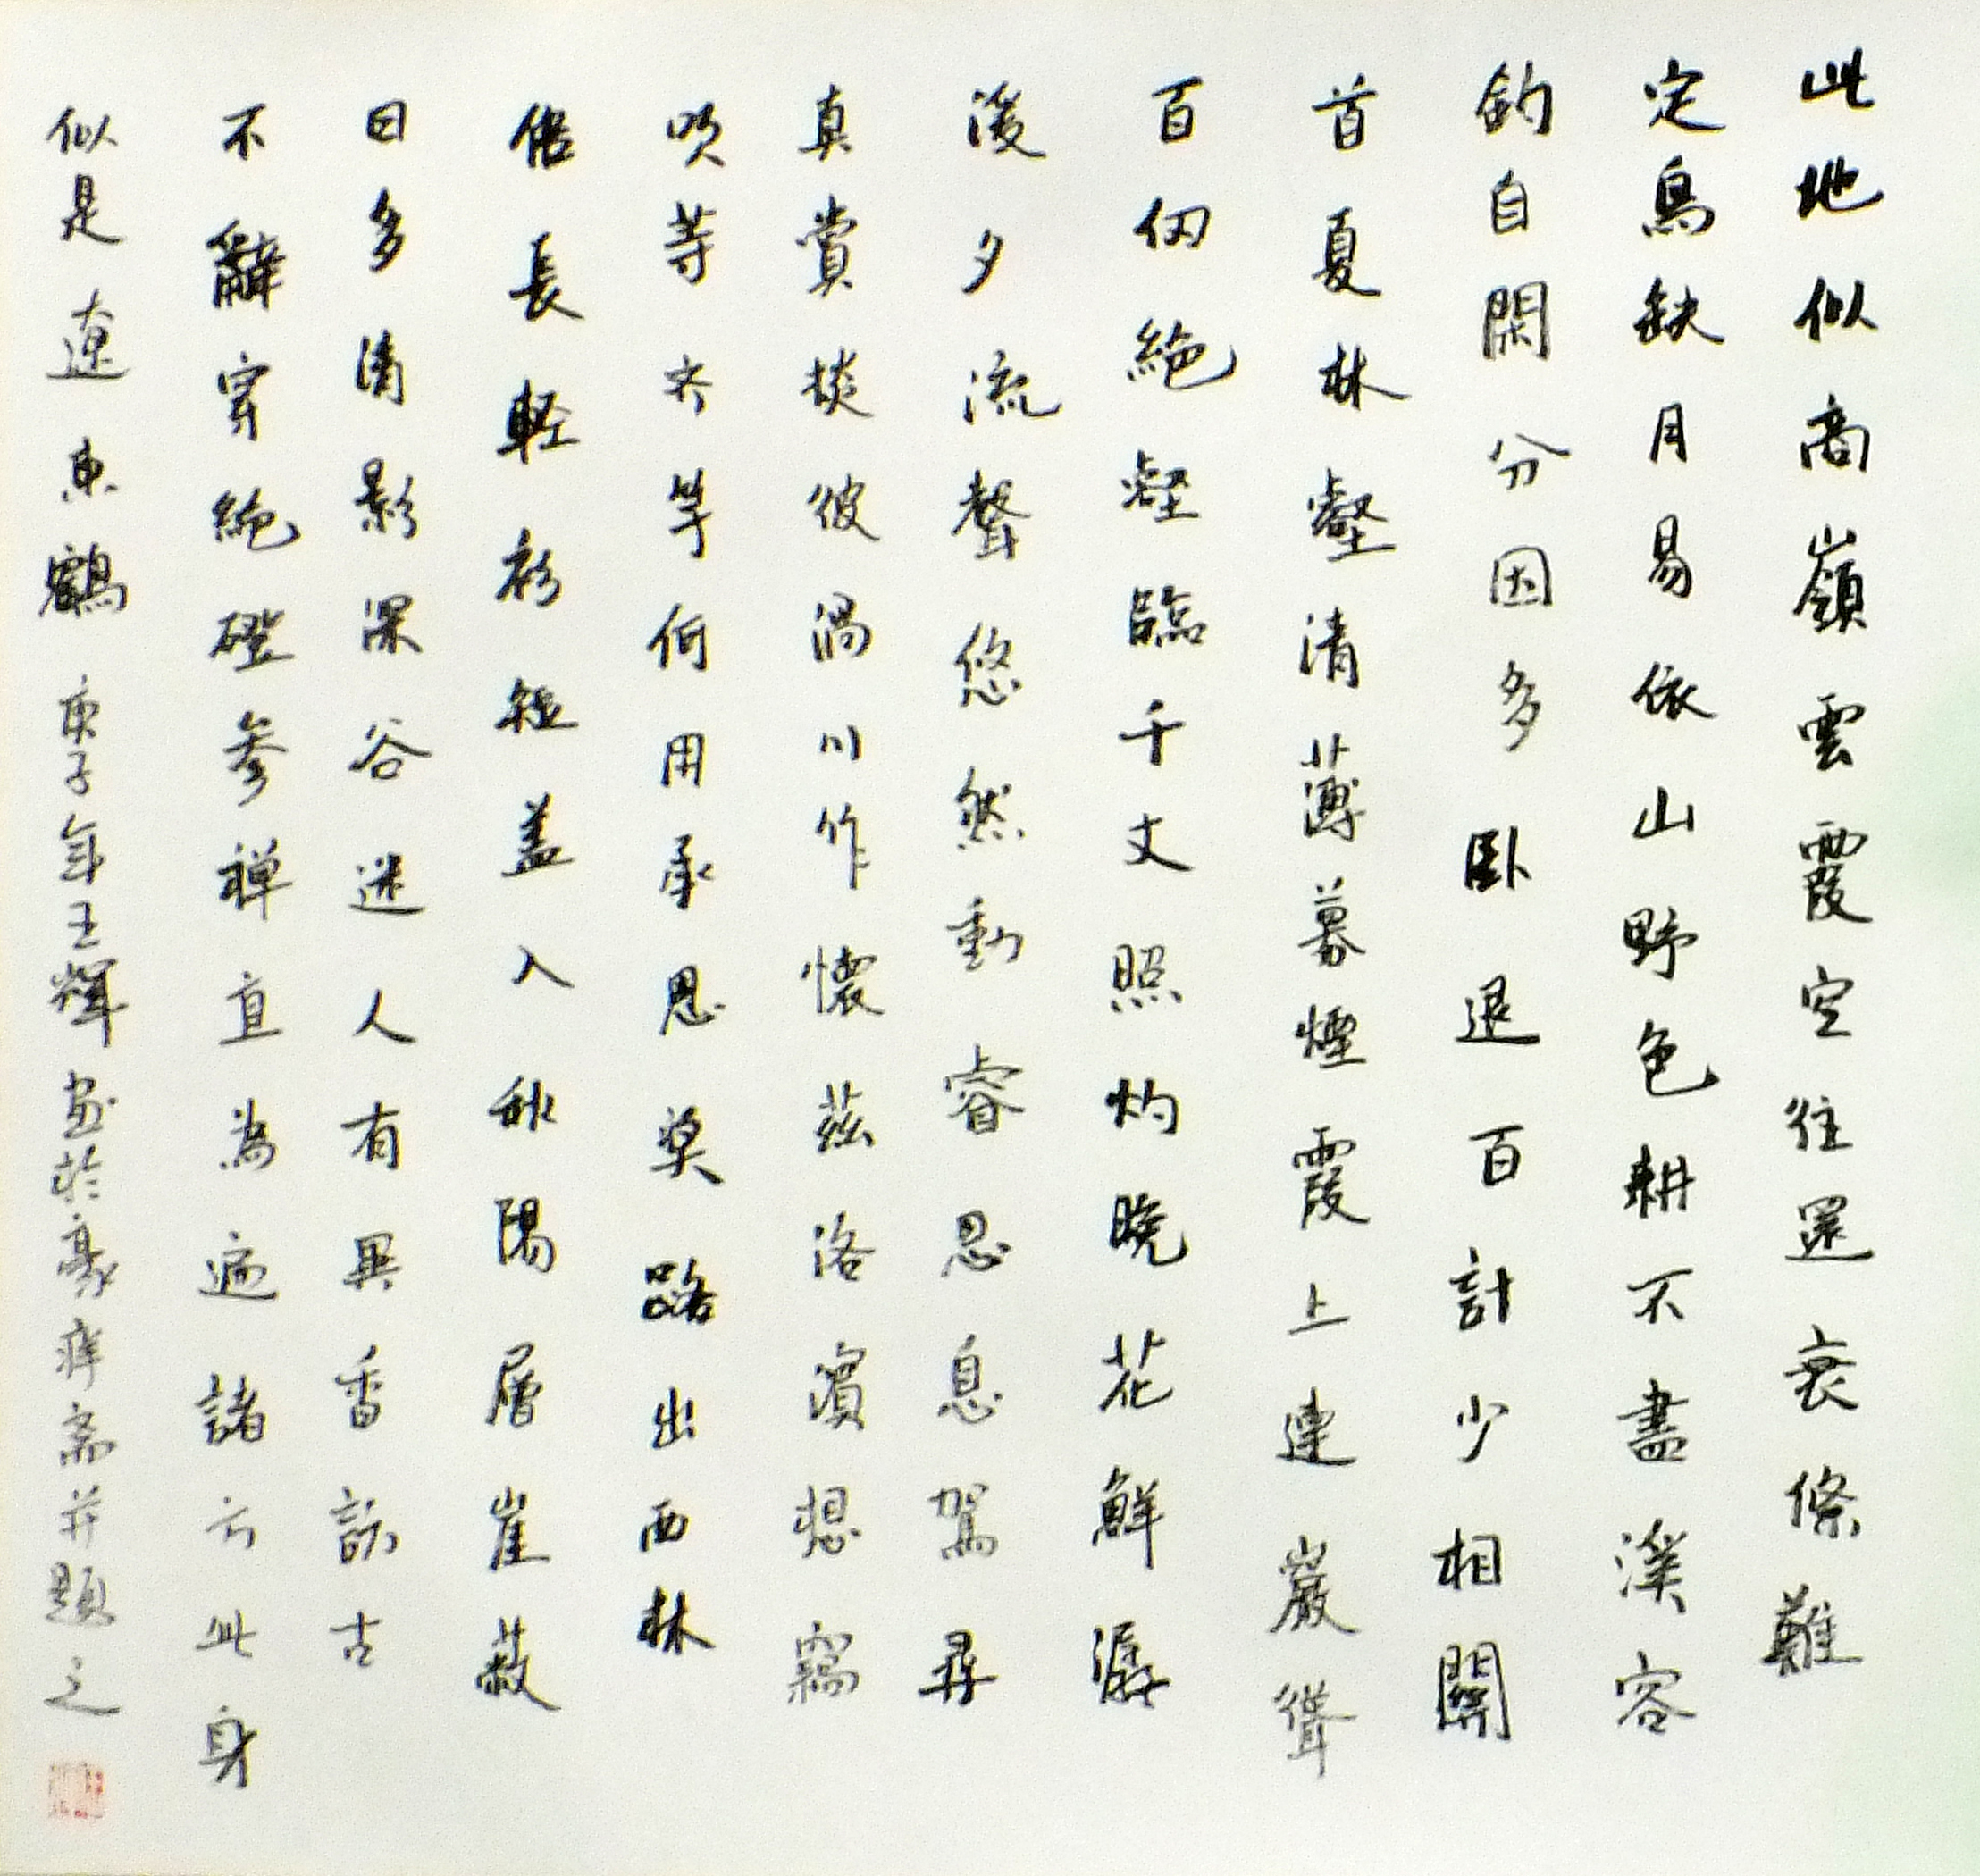 此地似商嶺雲霞空往還衰條難
定鳥缺月易依山野色耕不盡溪容
釣自閑分因多臥退百計少相關
首夏林壑清薄暮煙霞上連巖聳
百仞絕壑臨千丈照灼晚花鮮潺
湲夕流聲悠然動睿思息駕尋
真賞挨彼渦川作懷茲洛濱想竊
吹等齊竽何用承恩奬路出西林
倦長輕衫短盖入秋陽層崖蔽
日多清影深谷迷人有異香訪古
不辭穿絕磴參禪直為遍諸方此身
似是遼東鶴 庚子年王輝畫於豪痒齋并題之